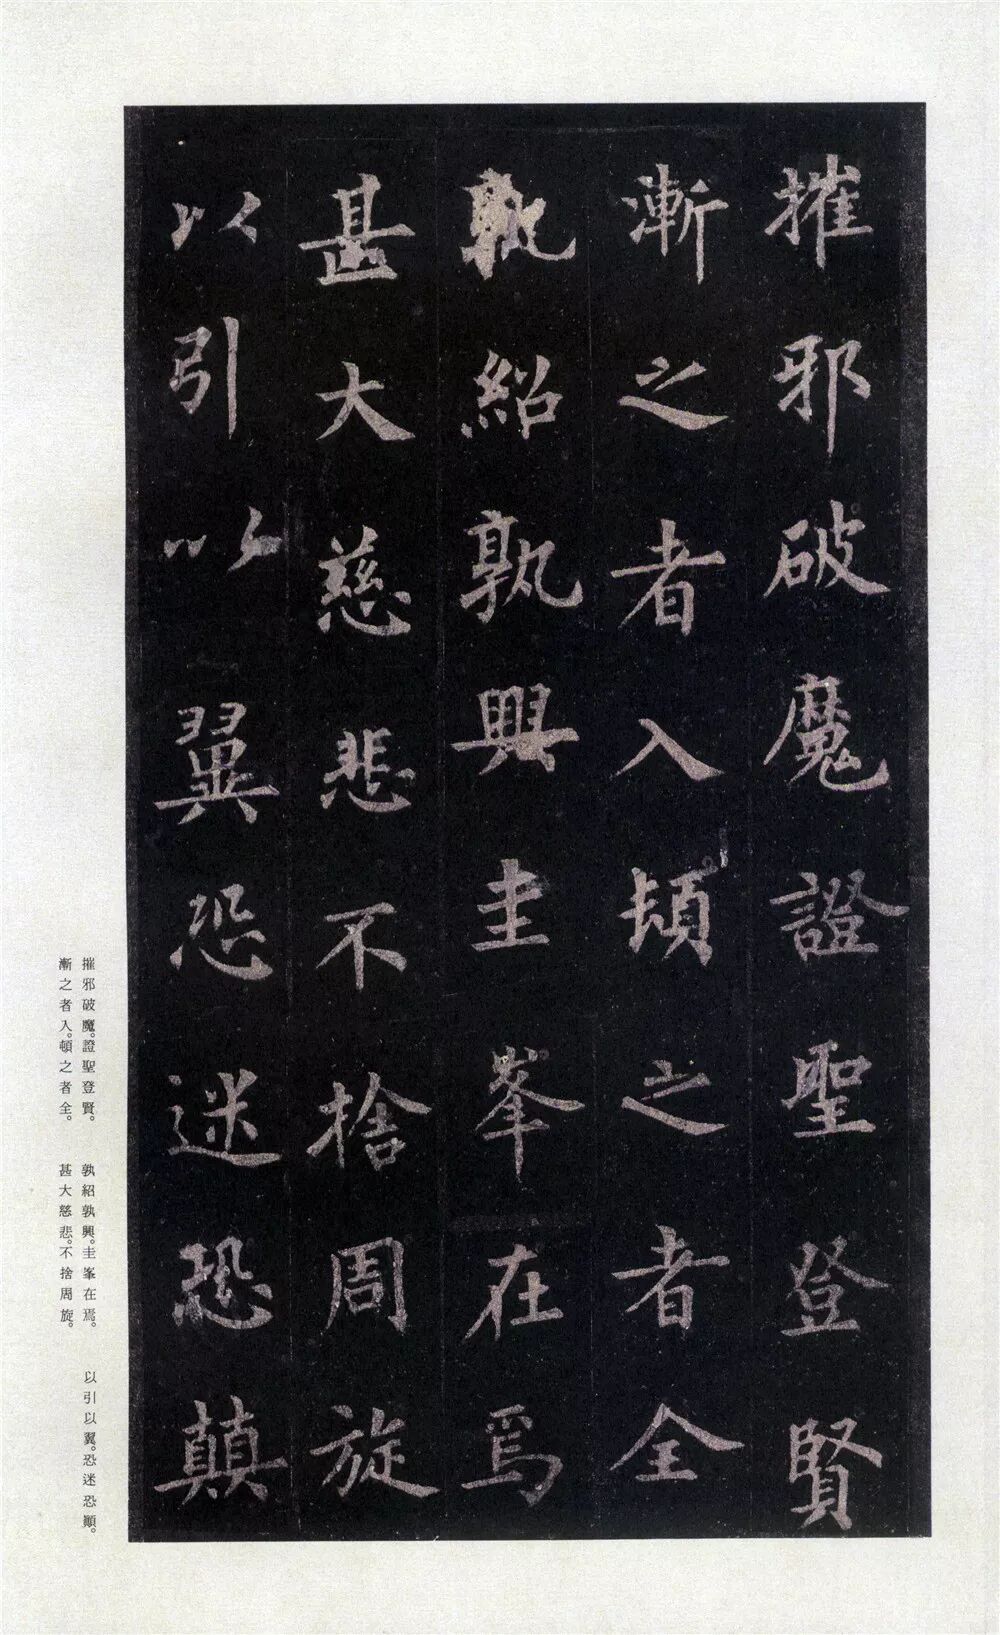 摧邪破魔證聖登賢
漸之者入頓之者全
孰紹孰興圭峯在焉
甚大慈悲不捨周旋
以引以翼恐迷恐顛
摧邪破魔。證聖登賢。
漸之者入。頓之者全。
孰紹孰興。圭峯在焉。
甚大慈悲。不捨周旋。
以引以翼。恐迷恐顚。